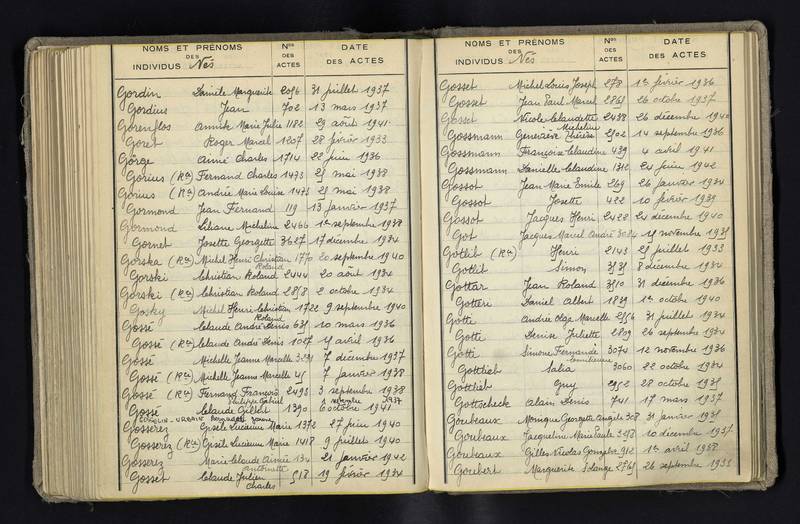 NOMS ET PRÉNOMS DES INDIVIDUS Nés Nos DES ACTES DATE DES ACTES
Gordin Daniele Marguerite 2096 31 juillet 1937
Gordius Jean 702 13 mars 1937
Gorenflos Annick Marie Julie 1182 29 août 1941
Goret Roger Marcel 1207 28 février 1933
Görge Aimé Charles 1714 22 juin 1936
Gorius (Rtn) Fernand Charles 1473 25 mai 1938
Gorius (Rtn) Andrée Marie Louise 1473 25 mai 1938
Gormond Jean Fernand 119 13 janvier 1937
Gormond Liliane Micheline 2466 1er septembre 1938
Gornet Josette Georgette 3627 17 décembre 1934
Gorska (Rtn) Michel Henri Christian 1770 20 septembre 1940
Gorski Christian Roland 2444 20 août 1934
Roland
Gorski (Rtn) Christian Roland 2858 2 octobre 1934
Gosky Michel Henri Christian 1722 9 septembre 1940
Roland
Gossé Claude André Denis 635 10 mars 1936
Gossé (Rtn) Claude André Denis 1027 15 avril 1936
Gossé Michelle Jeanne Marcelle 7 décembre 1937
Gossé (Rtn) Michelle Jeanne Marcelle 45 7 janvier 1938
Gossé (Rtn) Fernand François 2493 3 septembre 1938
Philippe Gabriel 1937
Gossé Claude Gilbert 1390 6 octobre 1941
Gosserez Gisèle Lucienne Marie 1372 27 juin 1940
Gosserez (Rtn) Gisèle Lucienne Marie 1418 9 juillet 1940
Gosserez Marie Claude Aimée 134 21 janvier 1942
antoinette
Gosset Claude Julien 518 19 février 1934
Charles
NOMS ET PRÉNOMS DES INDIVIDUS Nés Nos DES ACTES DATE DES ACTES
Gosset Michel Louis Joseph 278 1er février 1936
Gosset Jean Paul Marcel 2865 26 octobre 1937
Gosset Nicole Claudette 2438 26 décembre 1940
Micheline
Gossmann Geneviève Thérèse 2502 14 septembre 1936
Gossmann Françoise Claudine 439 4 avril 1941
Gossmann Danielle Claudine 1312 24 juin 1942
Gossot Jean Marie Emile 269 26 janvier 1934
Gossot Josette 422 10 février 1939
Gossot Jacques Henri 2428 24 décembre 1940
Got Jacques Marcel André 15 novembre 1935
Gotlib (Rtn) Henri 2143 25 juillet 1933
Gotlib Simon 8 décembre 1934
Gottar Jean Roland 3510 31 décembre 1936
Gottere Daniel Albert 1839 1er octobre 1940
Gotte Andre Olga Marcelle 2256 31 juillet 1934
Gotti Denise Juliette 2809 26 septembre 1934
Gotti Simone Fernande 3074 12 novembre 1936
Gottlieb Salia 3060 22 octobre 1934
Gottlieb Guy 28 octobre 1935
Gottscheck Alain Denis 741 17 mars 1937
Goubeaux Monique Georgette Angèle 308 31 janvier 1935
Goubeaux Jacqueline Marie Paule 10 décembre 1937
Goubeaux Gilles Nicolas 912 1er avril 1938
Goubert Marguerite Solange 26 septembre 1935